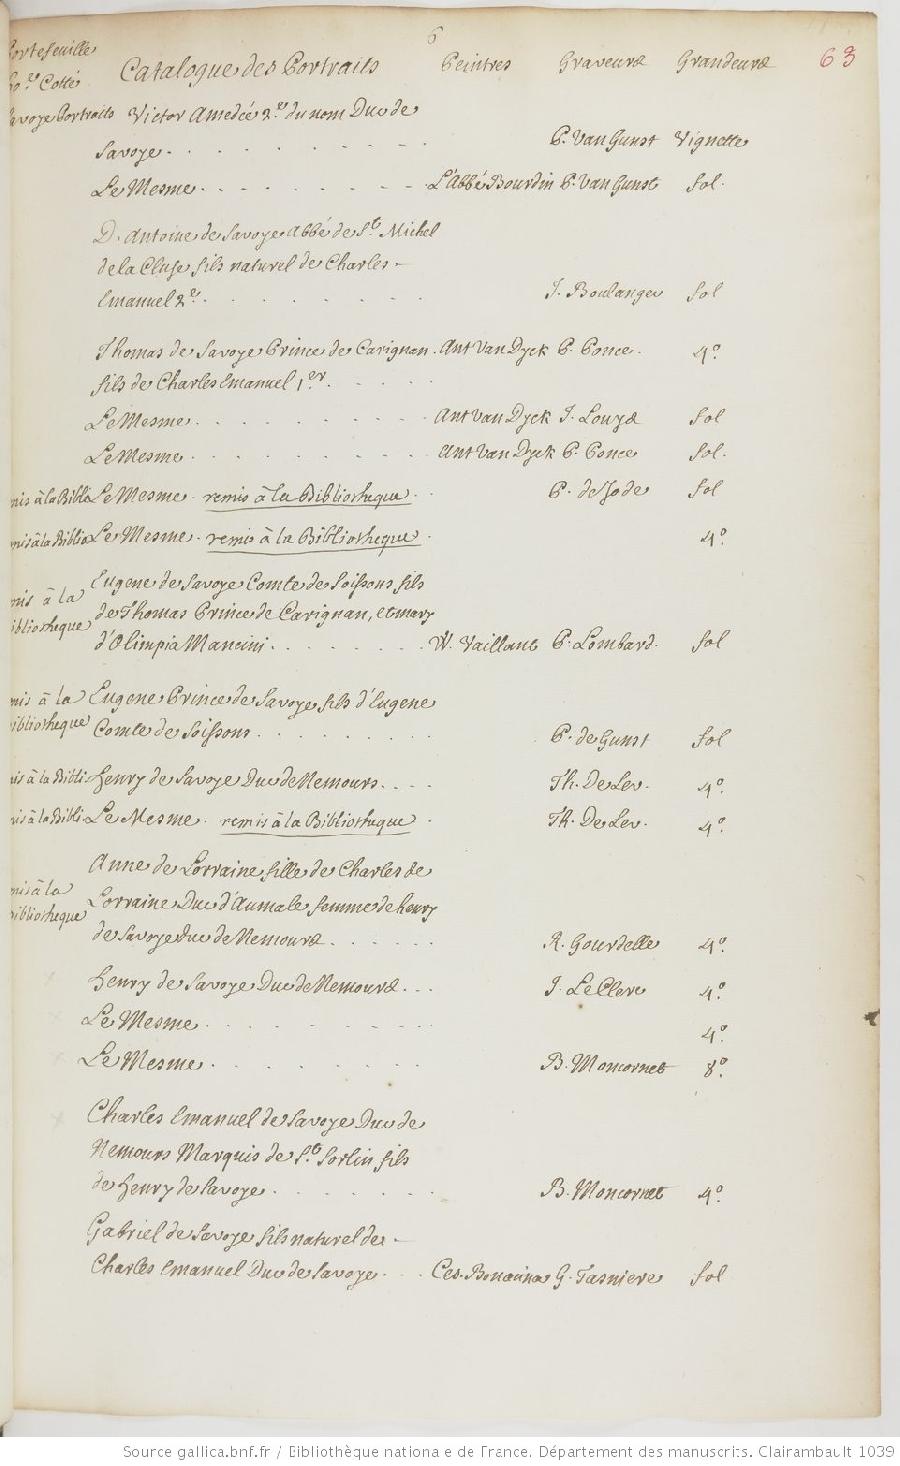 6
63
Portefeuille
No.re Cotté
Catalogue des Portraits Peintres Graveurs Grandeurs
Savoye Portraits Victor Amedée 2.e du nom Duc de
Savoye P. Van Gunst Vignette
Le Mesme L'Abbé Bourdin P. Van Gunst fol.
D. Antoine de Savoye Abbé de S.t Michel
de la Cluse fils naturel de Charles
Emanuel 2.e J. Boulanger fol
Thomas de Savoye Prince de Carignan Ant Van Dyck P. Ponce 4.o
fils de Charles Emanuel 1.er
Le Mesme Ant Van Dyck J. Louys fol
Le Mesme Ant Van Dyck P. Ponce fol.
mis à la Bibli Le Mesme remis à la Bibliotheque P. de Jode fol
mis à la Biblio Le Mesme remis à la Bibliotheque 4.o
mis à la
ibliotheque
Eugene de Savoye Comte de Soissons fils
de Thomas Prince de Carignan, et mary
d'Olimpia Mancini W. Vaillant P. Lombard fol
mis à la
ibliotheque
Eugene Prince de Savoye fils d'Eugene
Comte de Soissons P. de Gunst fol
mis à la Bibli Henry de Savoye Duc de Nemours Th. De Leu 4.o
mis à la Bibli Le Mesme remis à la Bibliotheque Th. De Leu 4.o
mis à la
ibliotheque
Anne de Lorraine fille de Charles de
Lorraine Duc d'Aumale femme de henry
de Savoye Duc de Nemours R. Gourdelle 4.o
Henry de Savoye Duc de Nemours J. Le Clerc 4.o
Le Mesme 4.o
Le Mesme B. Moncornet 8.o
Charles Emanuel de Savoye Duc de
Nemours Marquis de S.t Sorlin fils
de Henry de Savoye B. Moncornet 4.o
Gabriel de Savoye fils naturel de
Charles Emanuel Duc de Savoye Ces. G. Tasniere fol
Source gallica.bnf.fr / Bibliothèque nationale de France. Département des manuscrits. Clairambault 1039